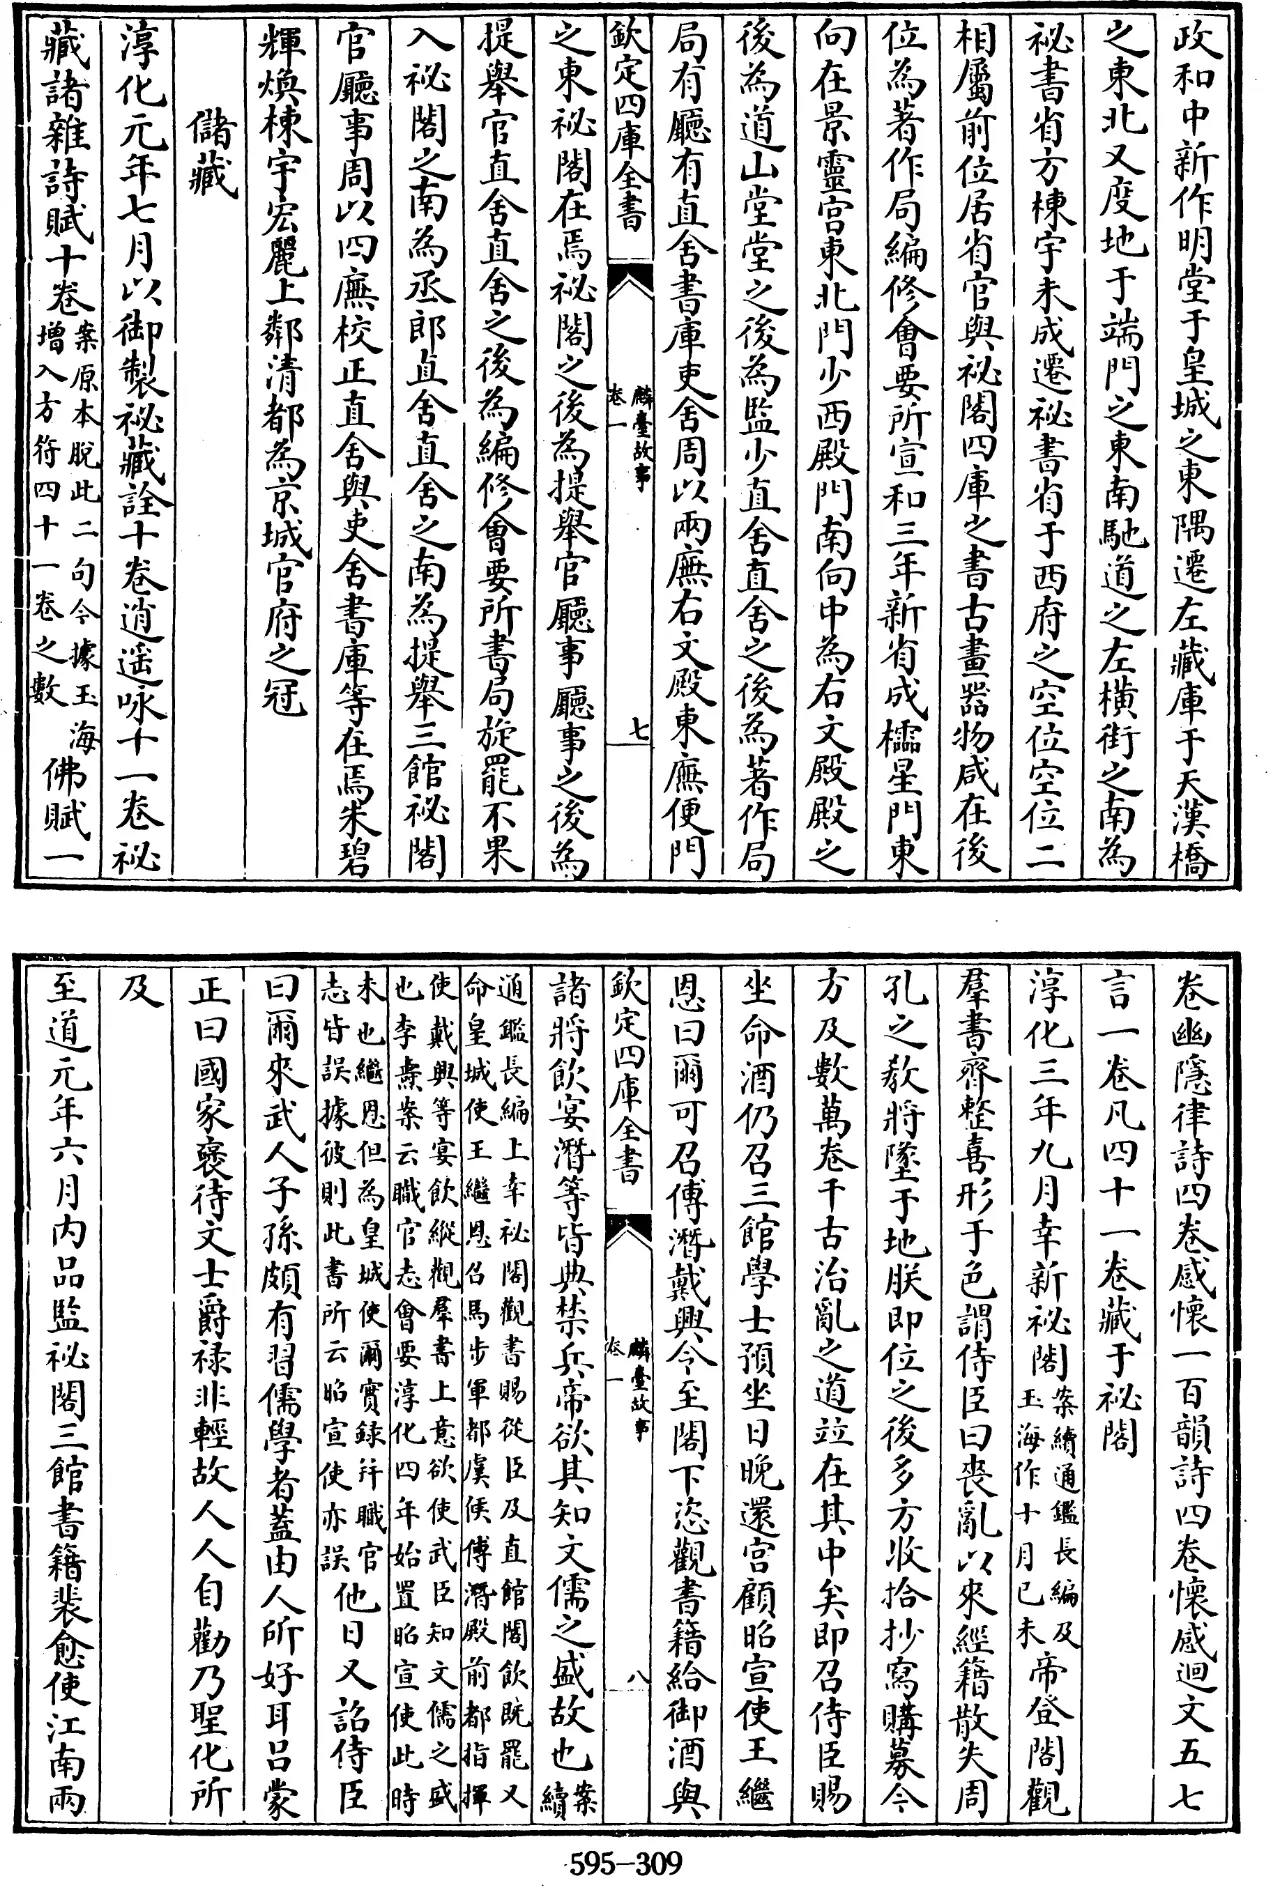 政和中新作明堂于皇城之東隅遷左藏庫于天漢橋
之東北又度地于端門之東南馳道之左橫街之南為
祕書省方棟宇未成遷祕書省于西府之空位空位二
相屬前位居省官與祕閣四庫之書古畫器物咸在後
位為著作局編修會要所宣和三年新省成櫺星門東
向在景靈宮東北門少西殿門南向中為右文殿殿之
後為道山堂堂之後為監少直舍直舍之後為著作局
局有廳有直舍書庫吏舍周以兩廡右文殿東廡便門
欽定四庫全書
麟臺故事
卷一
七
之東祕閣在焉祕閣之後為提舉官廳事廳事之後為
提舉官直舍直舍之後為編修會要所書局旋罷不果
入祕閣之南為丞郎直舍直舍之南為提舉三館祕閣
官廳事周以四廡校正直舍與吏舍書庫等在焉朱碧
輝煥棟宇宏麗上鄰清都為京城官府之冠
儲藏
淳化元年七月以御製祕藏詮十卷逍遙咏十一卷祕
藏諸雜詩賦十卷案原本脫此二句今據玉海增入方符四十一卷之數佛賦一
卷幽隱律詩四卷感懷一百韻詩四卷懷感迴文五七
言一卷凡四十一卷藏于祕閣
淳化三年九月幸新祕閣案續通鑑長編及玉海作十月己未帝登閣觀
羣書齊整喜形于色謂侍臣曰喪亂以來經籍散失周
孔之教將墜于地朕即位之後多方收拾抄寫購募今
方及數萬卷千古治亂之道竝在其中矣即召侍臣賜
坐命酒仍召三館學士預坐日晚還宮顧昭宣使王繼
恩曰爾可召傅潛戴興令至閣下恣觀書籍給御酒與
欽定四庫全書
麟臺故事
卷一
八
諸將飲宴潛等皆典禁兵帝欲其知文儒之盛故也案續
通鑑長編上幸祕閣觀書賜從臣及直館閣飲既罷又
命皇城使王繼恩召馬步軍都虞候傅潛殿前都指揮
使戴興等宴飲縱觀羣書上意欲使武臣知文儒之盛
也李燾案云職官志會要淳化四年始置昭宣使此時
未也繼恩但為皇城使爾實錄并職官
志皆誤據彼則此書所云昭宣使亦誤他日又詔侍臣
曰爾來武人子孫頗有習儒學者蓋由人所好耳呂蒙
正曰國家褒待文士爵祿非輕故人人自勸乃聖化所
及
至道元年六月內品監祕閣三館書籍裴愈使江南兩
595-309